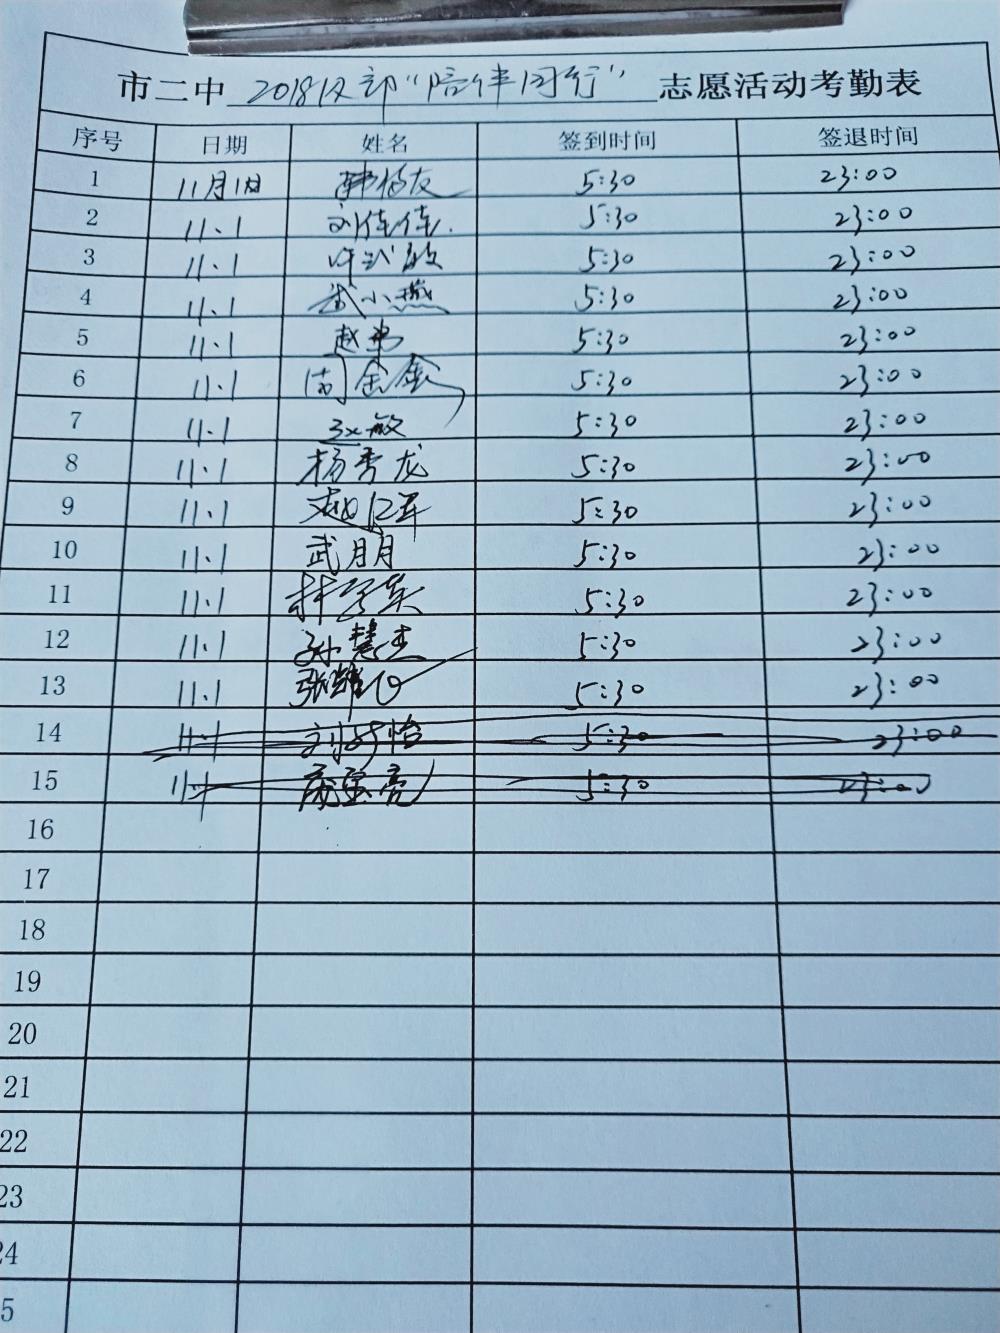 市二中 2018级部“陪伴同行” 志愿活动考勤表
序号 日期 姓名 签到时间 签退时间
1 11月1日 韩 友 5:30 23:00
2 11.1 刘佳佳. 5:30 23:00
3 11.1 许 敏 5:30 23:00
4 11.1 武小燕 5:30 23:00
5 11.1 赵 5:30 23:00
6 11.1 周金金 5:30 23:00
7 11.1 赵敏 5:30 23:00
8 11.1 杨秀龙 5:30 23:00
9 11.1 赵红军 5:30 23:00
10 11.1 武月月 5:30 23:00
11 11.1 英 5:30 23:00
12 11.1 孙慧杰 5:30 23:00
13 11.1 张耀 5:30 23:00
14 11.1 刘 怡 5:30 23:00
15 11.1 亮 5:30 23:00
16
17
18
19
20
21
22
23
24
5